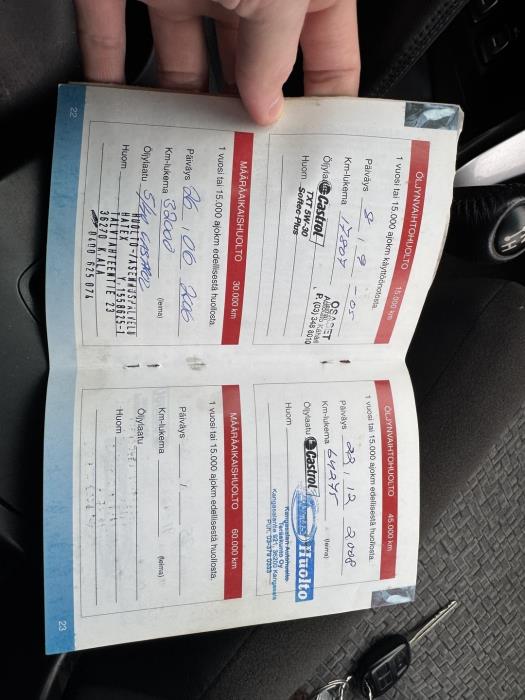 ÖLJYNVAIHTOHUOLTO 15.000 km
1 vuosi tai 15.000 ajokm käyttöönotosta.
Päiväys 8 , 9 -05
Km-lukema 17807
Öljylaatu Castrol
TXT 5W-30
Softec-Plus
Huom
P. (03) 348 8010
MÄÄRÄAIKAISHUOLTO 30.000 km
1 vuosi tai 15.000 ajokm edellisestä huollosta.
Päiväys 26 , 06 2006
Km-lukema 33000
(leima)
Öljylaatu
Huom
HUOLTO-JA
HATEX Y.1558625-1
TALTANTEENTIE 23
36270 K.ALA
0400 625 074
22
ÖLJYNVAIHTOHUOLTO 45.000 km
1 vuosi tai 15.000 ajokm edellisestä huollosta.
Päiväys 22 , 12 2008
Km-lukema 64275
(leima)
Öljylaatu Castrol
Huolto
Huom
Kangasalan Autohuolto
Tarjastunto Oy
Kangasalantie 921, 36200 Kangasala
Puh. 03-379 0333
MÄÄRÄAIKAISHUOLTO 60.000 km
1 vuosi tai 15.000 ajokm edellisestä huollosta.
Päiväys /
Km-lukema
(leima)
Öljylaatu
Huom
23